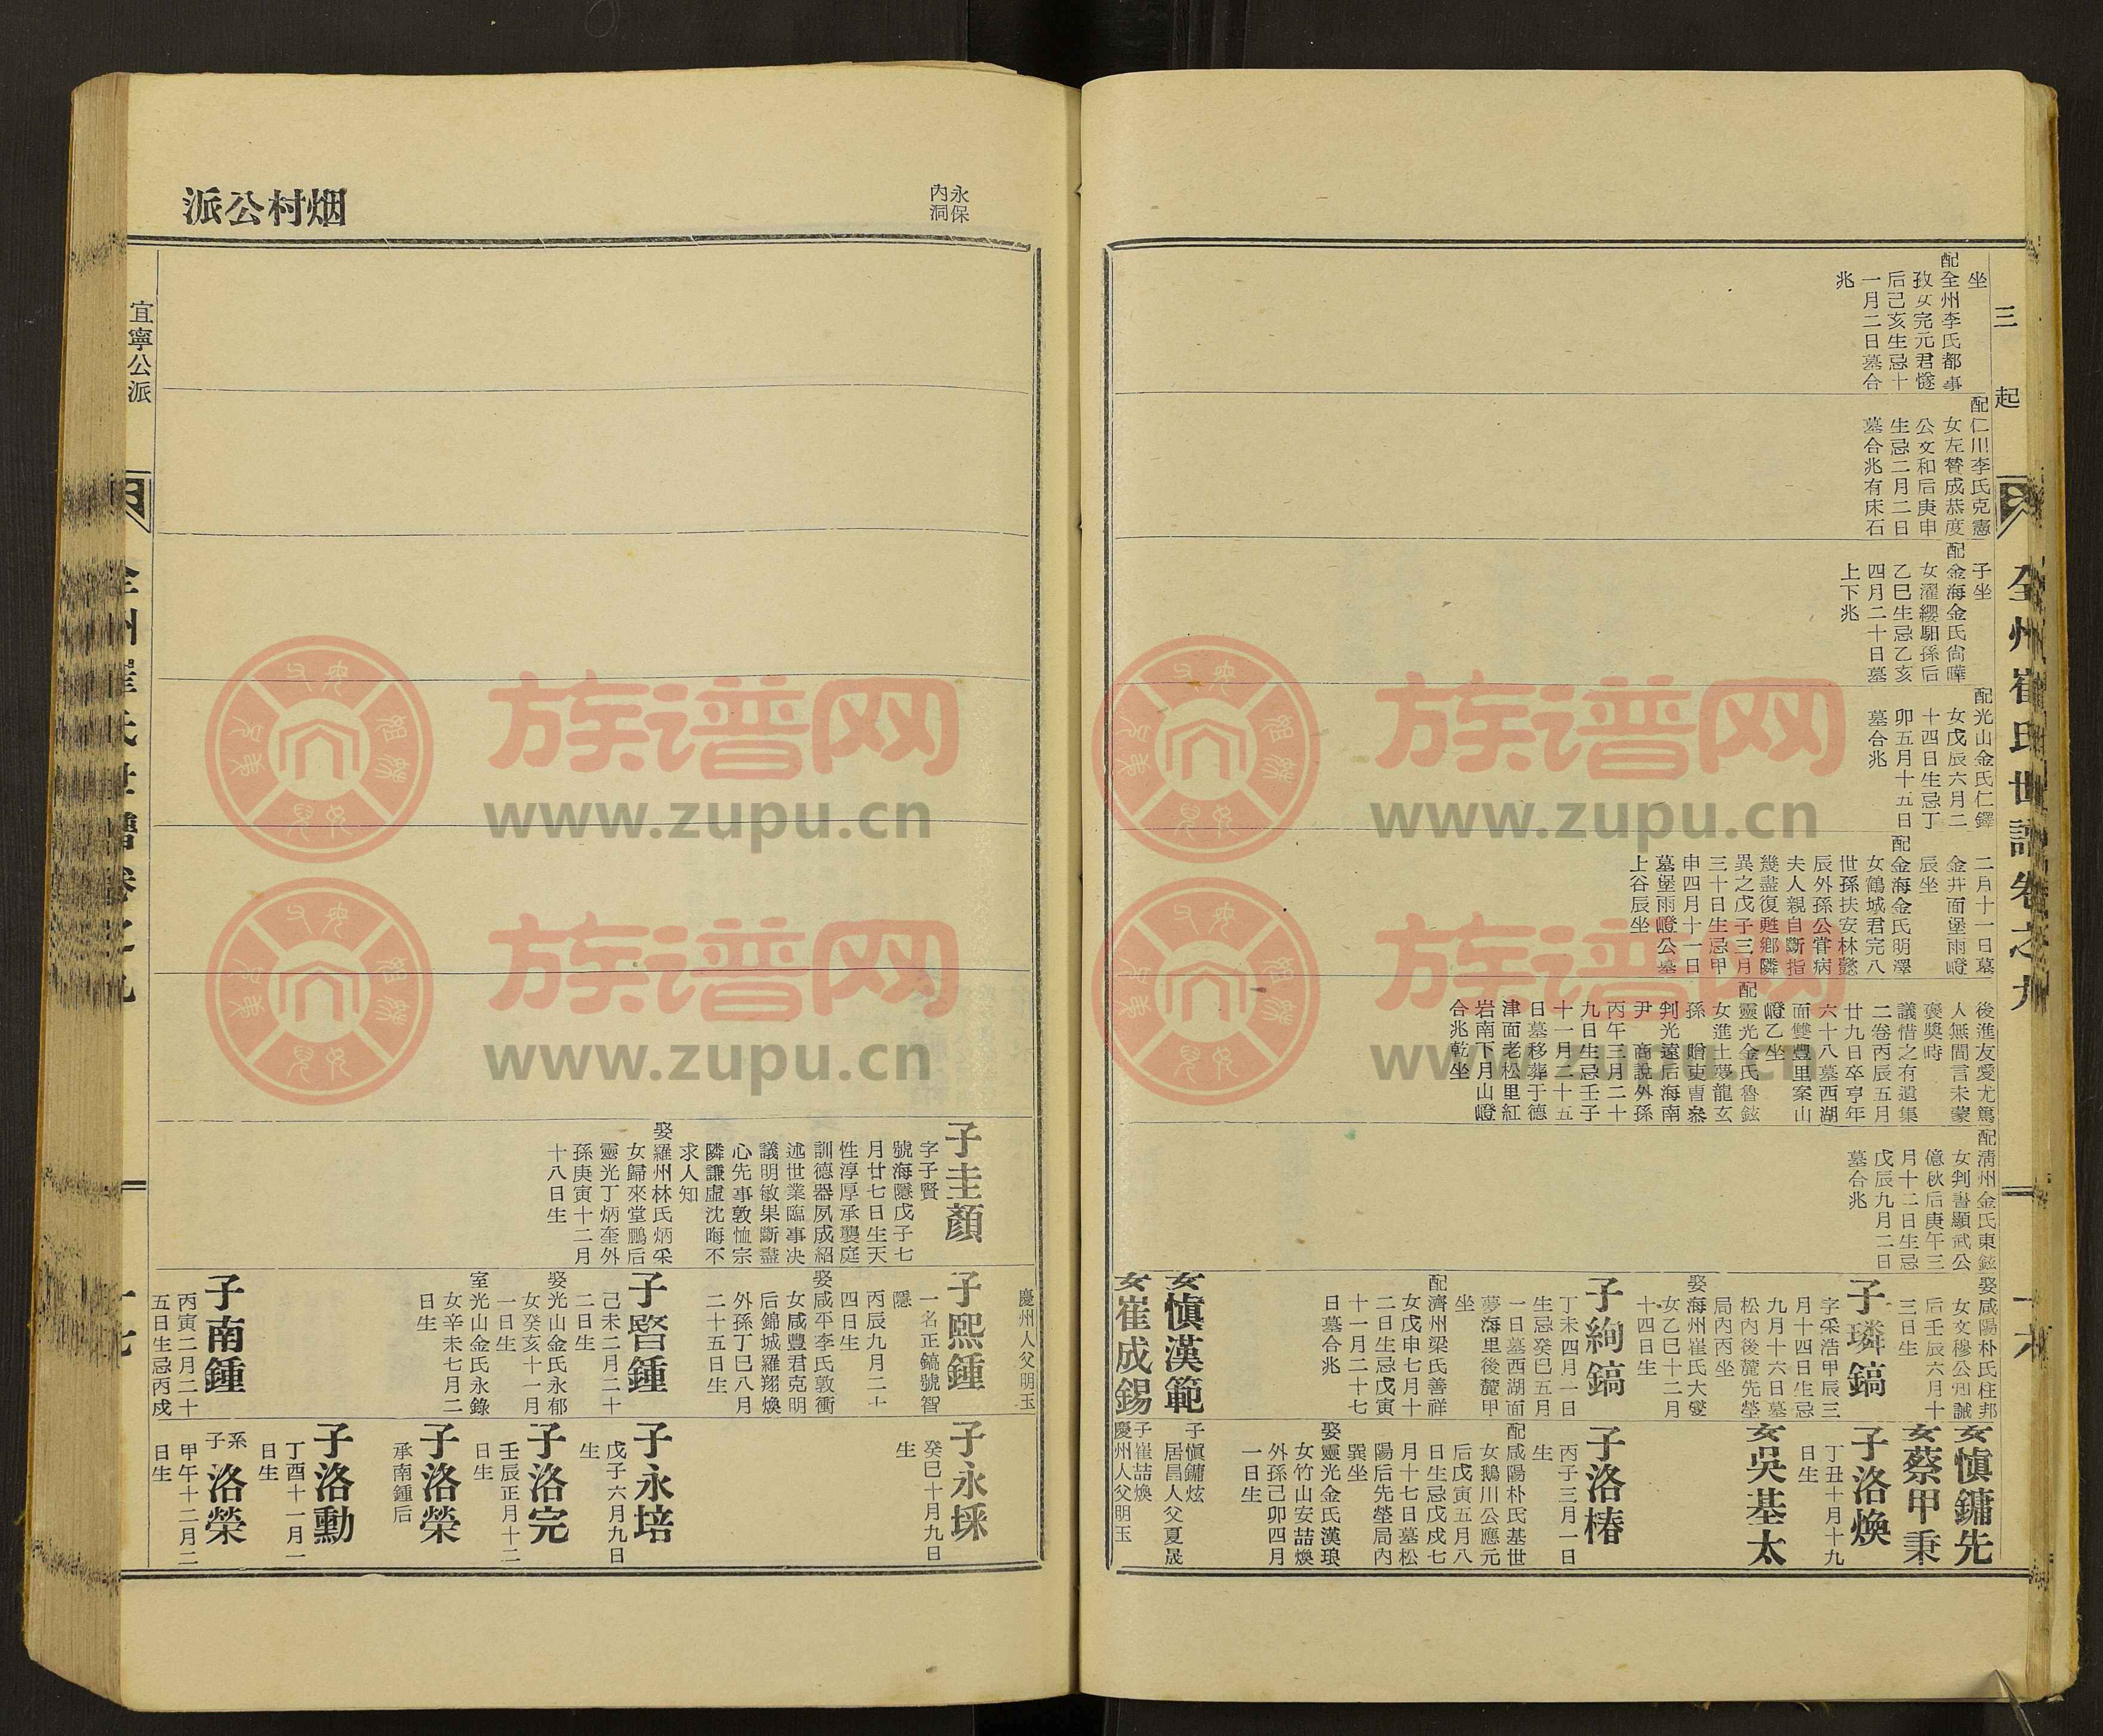 三
起
全州崔氏世譜卷之九
十六
坐
配全州李氏都事
孜女完元君㥞
后己亥生忌十
一月二日墓合
兆
配仁川李氏克憲
女左贊成恭度
公文和后庚申
生忌二月二日
墓合兆有床石
子坐
配金海金氏尙曄
女濯纓馹孫后
乙巳生忌乙亥
四月二十日墓
上下兆
配光山金氏仁鐸
女戊辰六月二
十四日生忌丁
卯五月十五日
墓合兆
二月十一日墓
金井面堡雨嶝
辰坐
配金海金氏明澤
女鶴城君完八
世孫扶安林懿
辰外孫公甞病
夫人親自斷指
幾盡復甦鄉隣
異之戊子三月
三十日生忌甲
申四月十一日
墓堡雨嶝公墓
上谷辰坐
後進友愛尤篤
人無間言未蒙
褒奬時
議惜之有遺集
二卷丙辰五月
廿九日卒亨年
六十八墓西湖
面雙豊里案山
嶝乙坐
配靈光金氏魯鉉
女進士夢龍玄
孫　贈吏曹叅
判光遠后海南
尹　商說外孫
丙午三月二十
九日生忌壬子
十一月二十五
日墓移葬于德
津面老松里紅
岩南下月山嶝
合兆乾坐
配淸州金氏東鉉
女判書顯武公
億秋后庚午三
月十二日生忌
戊辰九月二日
墓合兆
娶咸陽朴氏柱邦
女文穆公知誠
后壬辰六月十
三日生
子璘鎬
字采浩甲辰三
月十四日生忌
九月十六日墓
松內後麓先塋
局內丙坐
娶海州崔氏大燮
女乙巳十二月
十四日生
子絢鎬
丁未四月一日
生忌癸巳五月
一日墓西湖面
夢海里後麓甲
坐
配濟州梁氏善祥
女戊申七月十
二日生忌戊寅
十一月二十七
日墓合兆
女愼漢範
女崔成錫
女愼鏞先
女蔡甲秉
子洛煥
丁丑十月十九
日生
女吳基太
子洛椿
丙子三月一日
生
配咸陽朴氏基世
女鵝川公應元
后戊寅五月八
日生忌戊戌七
月十七日墓松
陽后先塋局內
巽坐
娶靈光金氏漢琅
女竹山安喆煥
外孫己卯四月
一日生
子愼鏞炫
居昌人父夏晟
子崔喆煥
慶州人父明玉
永保
內洞
烟村公派
子圭顏
字子賢
號海隱戊子七
月廿七日生天
性淳厚承襲庭
訓德器夙成紹
述世業臨事决
議明敏果斷盡
心先事敦恤宗
隣謙虛沈晦不
求人知
娶羅州林氏炳采
女歸來堂鵬后
靈光丁炳奎外
孫庚寅十二月
十八日生
慶州人父明玉
子熙鍾
一名正鎬號智
隱
丙辰九月二十
四日生
娶咸平李氏敦衝
女咸豊君克明
后錦城羅翔煥
外孫丁巳八月
二十五日生
子啓鍾
己未二月二十
二日生
娶光山金氏永郁
女癸亥十一月
一日生
室光山金氏永錄
女辛未七月二
日生
子南鍾
丙寅二月二十
五日生忌丙戌
子永埰
癸巳十月九日
生
子永培
戊子六月九日
生
子洛完
壬辰正月十二
日生
子洛榮
承南鍾后
子洛勳
丁酉十一月一
日生
系子洛榮
甲午十二月二
日生
宜寧公派
全州崔氏世譜卷之九
十七
族谱网
www.zupu.cn
族谱网
www.zupu.cn
族谱网
www.zupu.cn
族谱网
www.zupu.cn